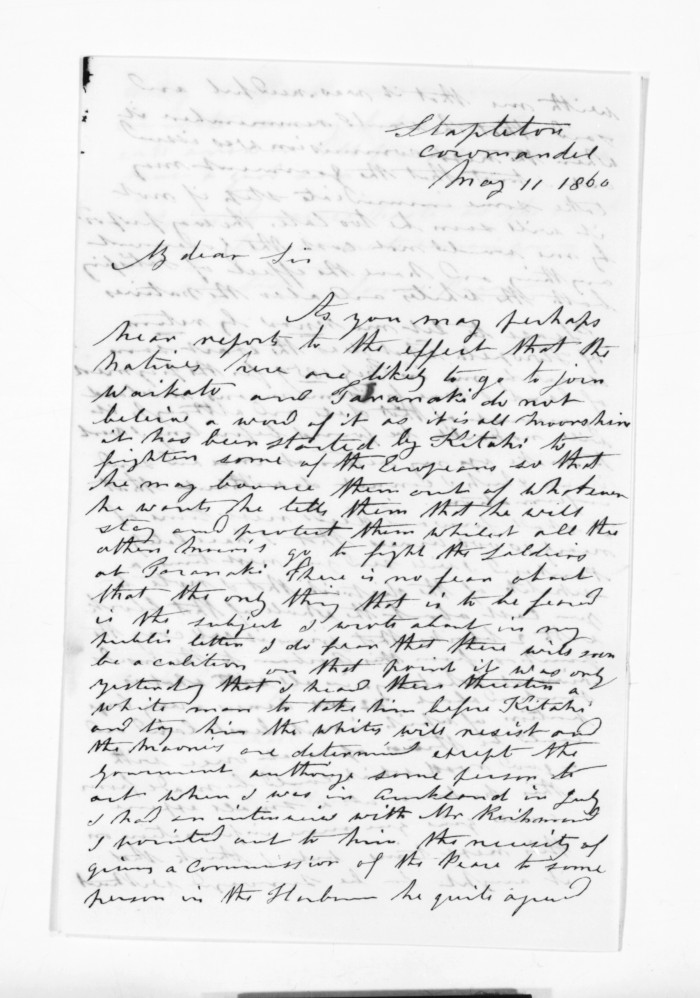 Stapleton
Cowmandel
May 11 1860
My dear Sir
As you may perhaps
hear reports to the effect that the
Natives here are likely to go to join
Waikato and Taranaki do not
believe a word of it as it is all moonshine
it has been started by Kitahi to
frighten some of the Europeans so that
he may bounce them out of whatever
he wants he tells them that he will
stay and protect them whilst all the
other Maoris go to fight the Soldiers
at Taranaki There is no fear about
that the only thing that is to be feared
is the subject I wrote about in my
public letter I do fear that there will soon
be a colition on that point it was only
yesterday that I heard them threaten a
white man to take him before Kitahi
and try him the whites will resist and
the Maories are determined except the
government authorize some person to
act when I was in Auckland in July
I had an interview with Mr Richmond
I pointed out to him the necessity of
giving a Commission of the Peace to some
person in the Harbour he quite agreed